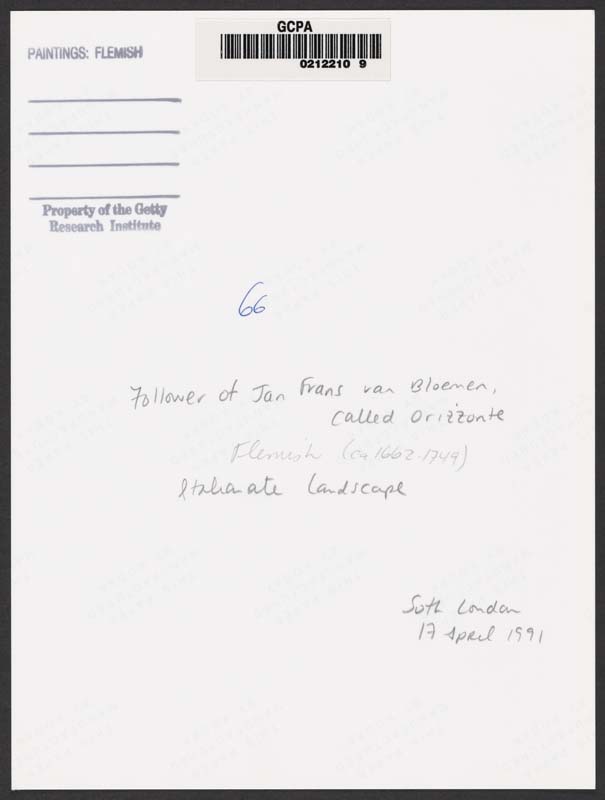 PAINTINGS: FLEMISH
GCPA
0212210 9
Property of the Getty
Research Institute
66
Follower of Jan Frans van Bloemen,
called Orizzonte
Flemish (ca 1662-1749)
Italianate Landscape
Soth London
17 April 1991